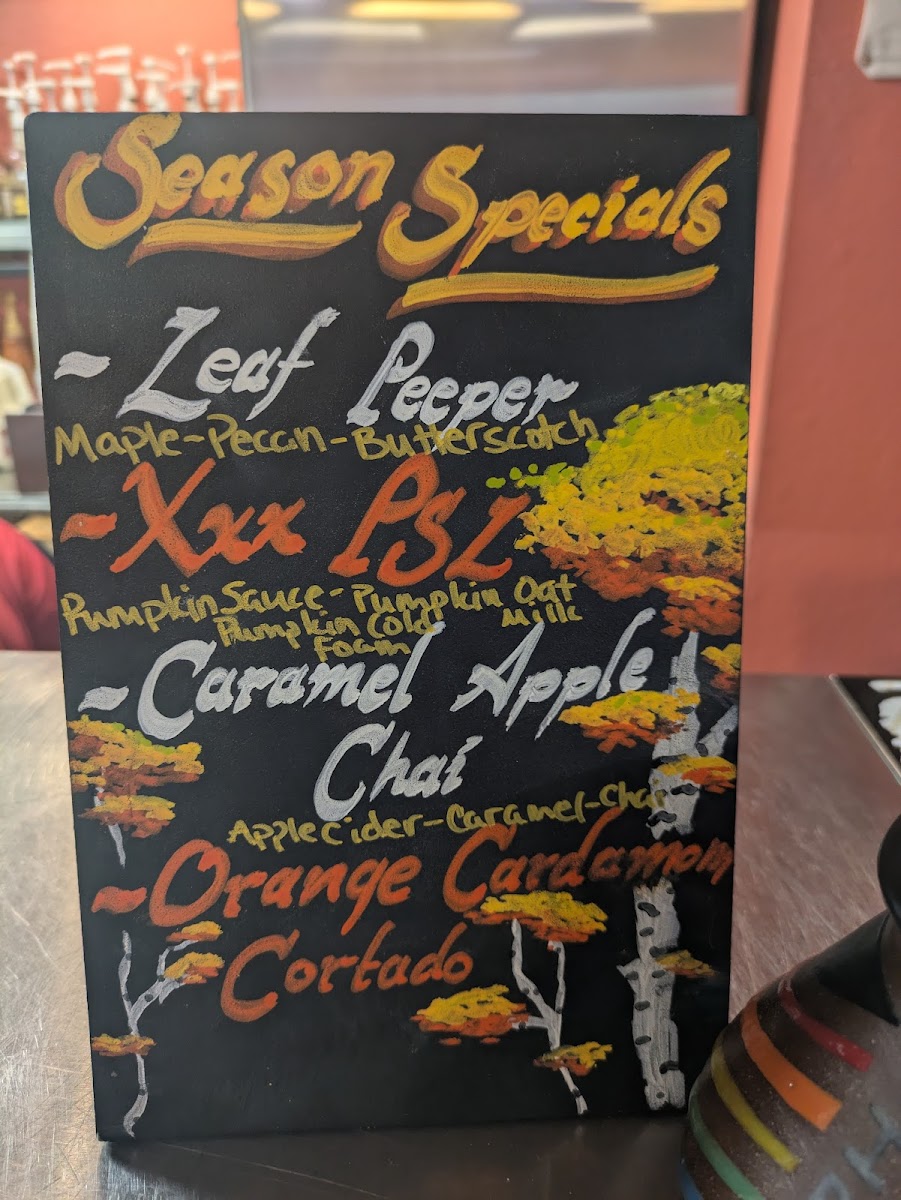 Season Specials
- Leaf Peeper
Maple-Pecan-Butterscotch
- Xxx PSL
Pumpkin Sauce - Pumpkin Oat Milk
Pumpkin Cold
Foam
- Caramel Apple
Chai
Apple Cider-Caramel-Chai
- Orange Cardamom
Cortado